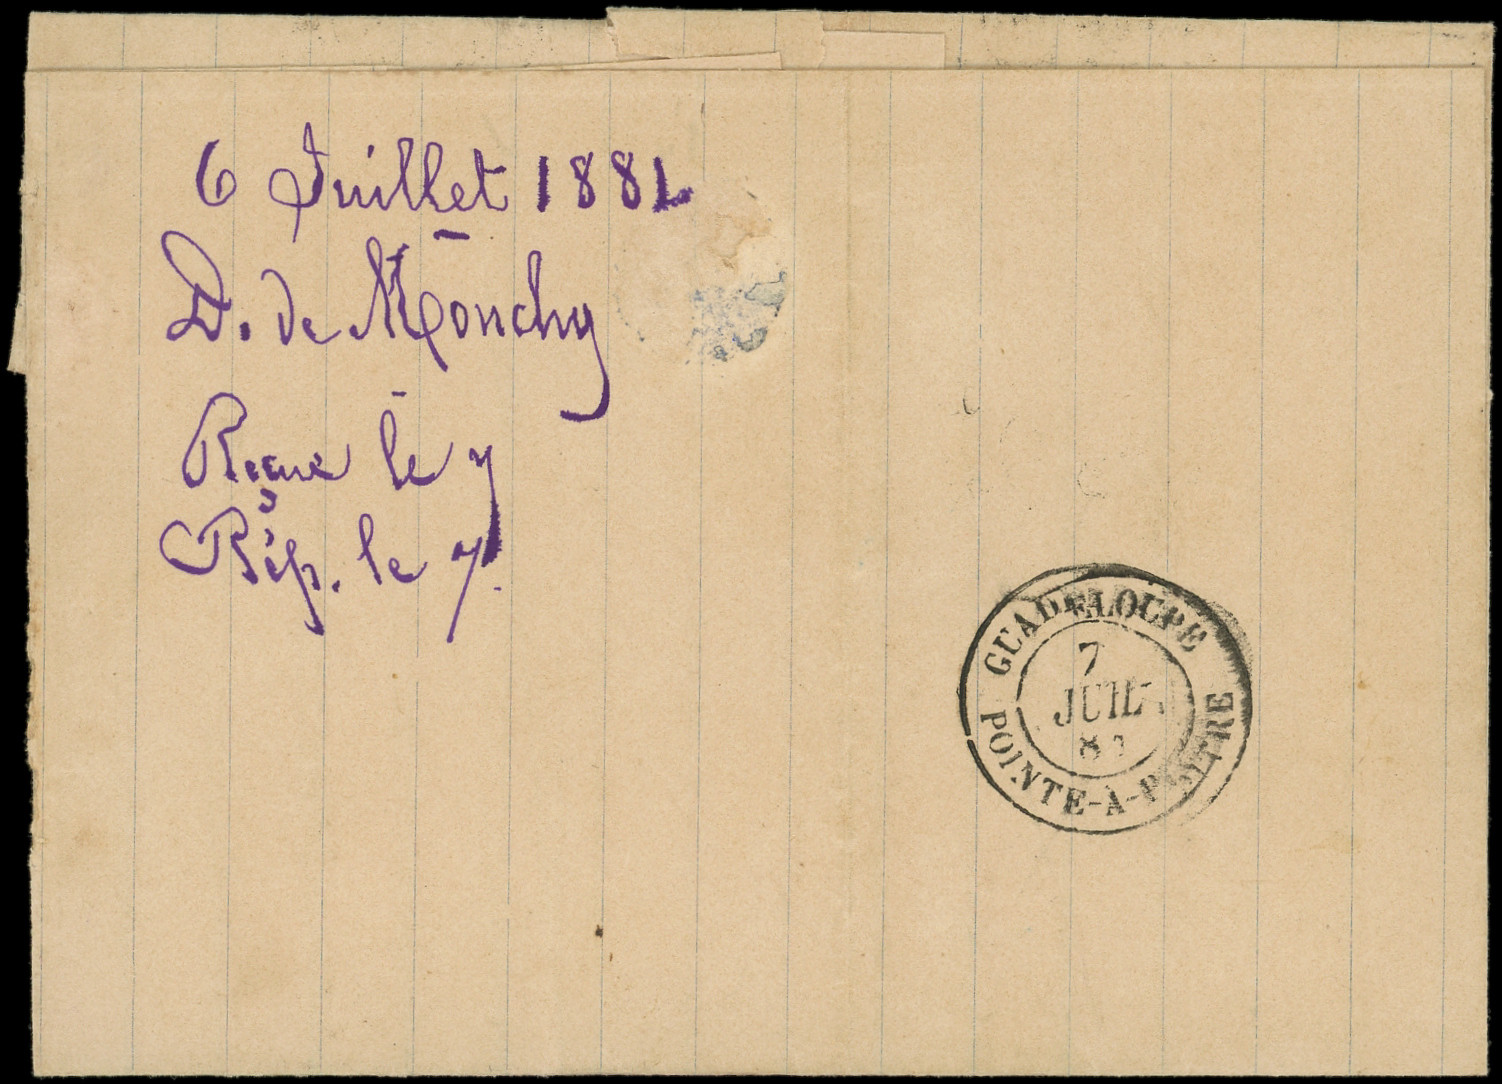 6 Juillet 1881
D. de Monchy
Reçue le 7
Rép. le 7.
GUADELOUPE
7
JUIL
POINTE-À-PITRE